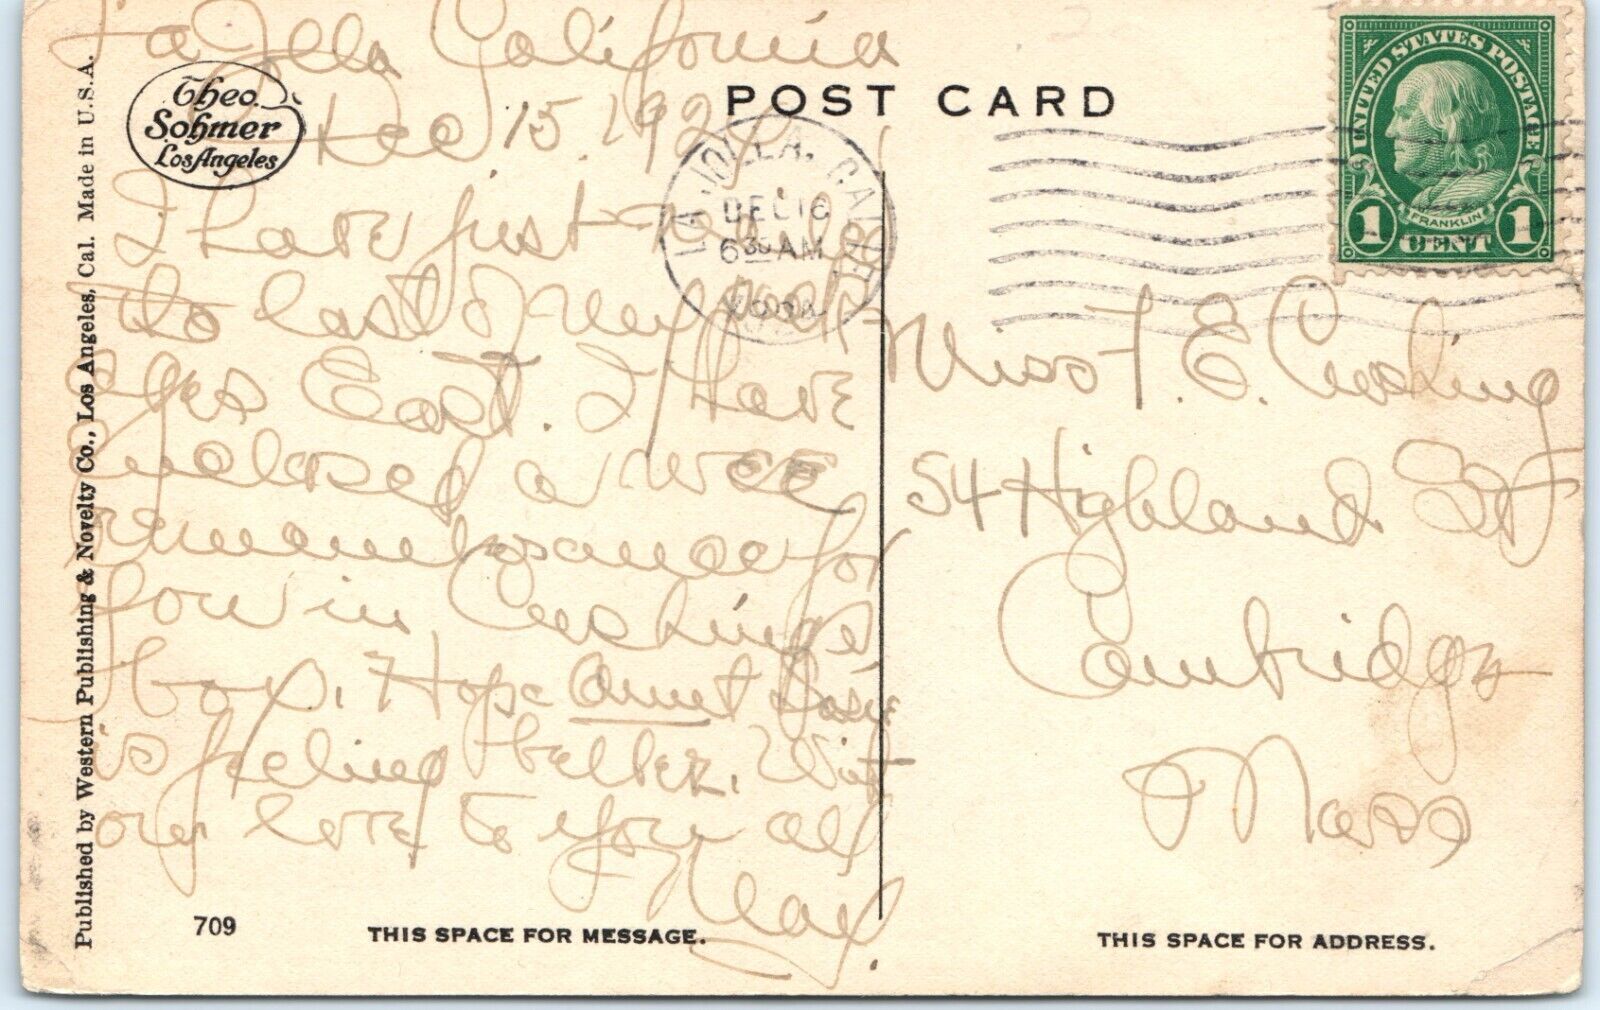 La Jolla California
Dec 15, 192
I have just
to last of my
Xes East. I have
inclosed a wee
rememberance for
you in Cushings
box. Hope Aunt Josie
is feeling better. With
our love to you all
May
Theo.
Sohmer
Los Angeles
Published by Western Publishing & Novelty Co., Los Angeles, Cal. Made in U.S.A.
709
THIS SPACE FOR MESSAGE.
POST CARD
LA JOLLA, CALIF.
DEC 16
6 30 AM
UNITED STATES POSTAGE
FRANKLIN
1 CENT 1
Miss F. E. Cushing
54 Highland St
Cambridge
Mass
THIS SPACE FOR ADDRESS.